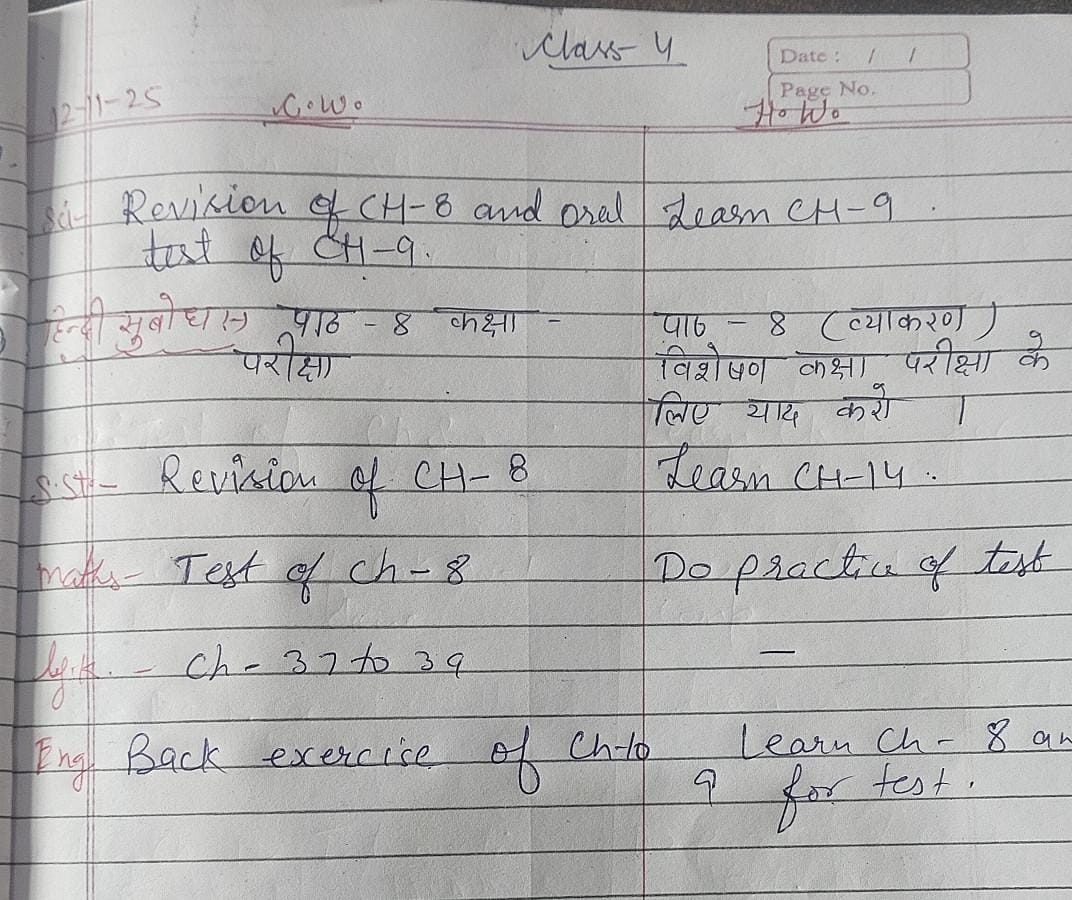 Class- 4
Date : / /
Page No.
12-11-25 C.W. H.W.
Sci- Revision of CH-8 and oral Learn CH-9.
test of CH-9.
हिन्दी सुबोध :→ पाठ - 8 कक्षा - पाठ - 8 (व्याकरण)
परीक्षा विशेषण कक्षा परीक्षा के
लिए याद करो ।
S.St- Revision of CH-8 Learn CH-14.
maths- Test of Ch-8 Do practice of test
G.K. - Ch-37 to 39 —
Eng Back exercise of Ch-10 Learn Ch-8 an
9 for test.